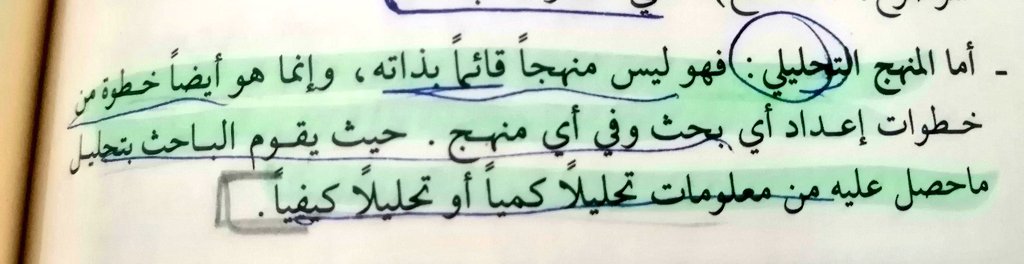 - أما المنهج التحليلي : فهو ليس منهجاً قائماً بذاته ، وإنما هو أيضاً خطوة من
خطوات إعداد أي بحث وفي أي منهج . حيث يقوم الباحث بتحليل
ماحصل عليه من معلومات تحليلاً كمياً أو تحليلاً كيفياً .